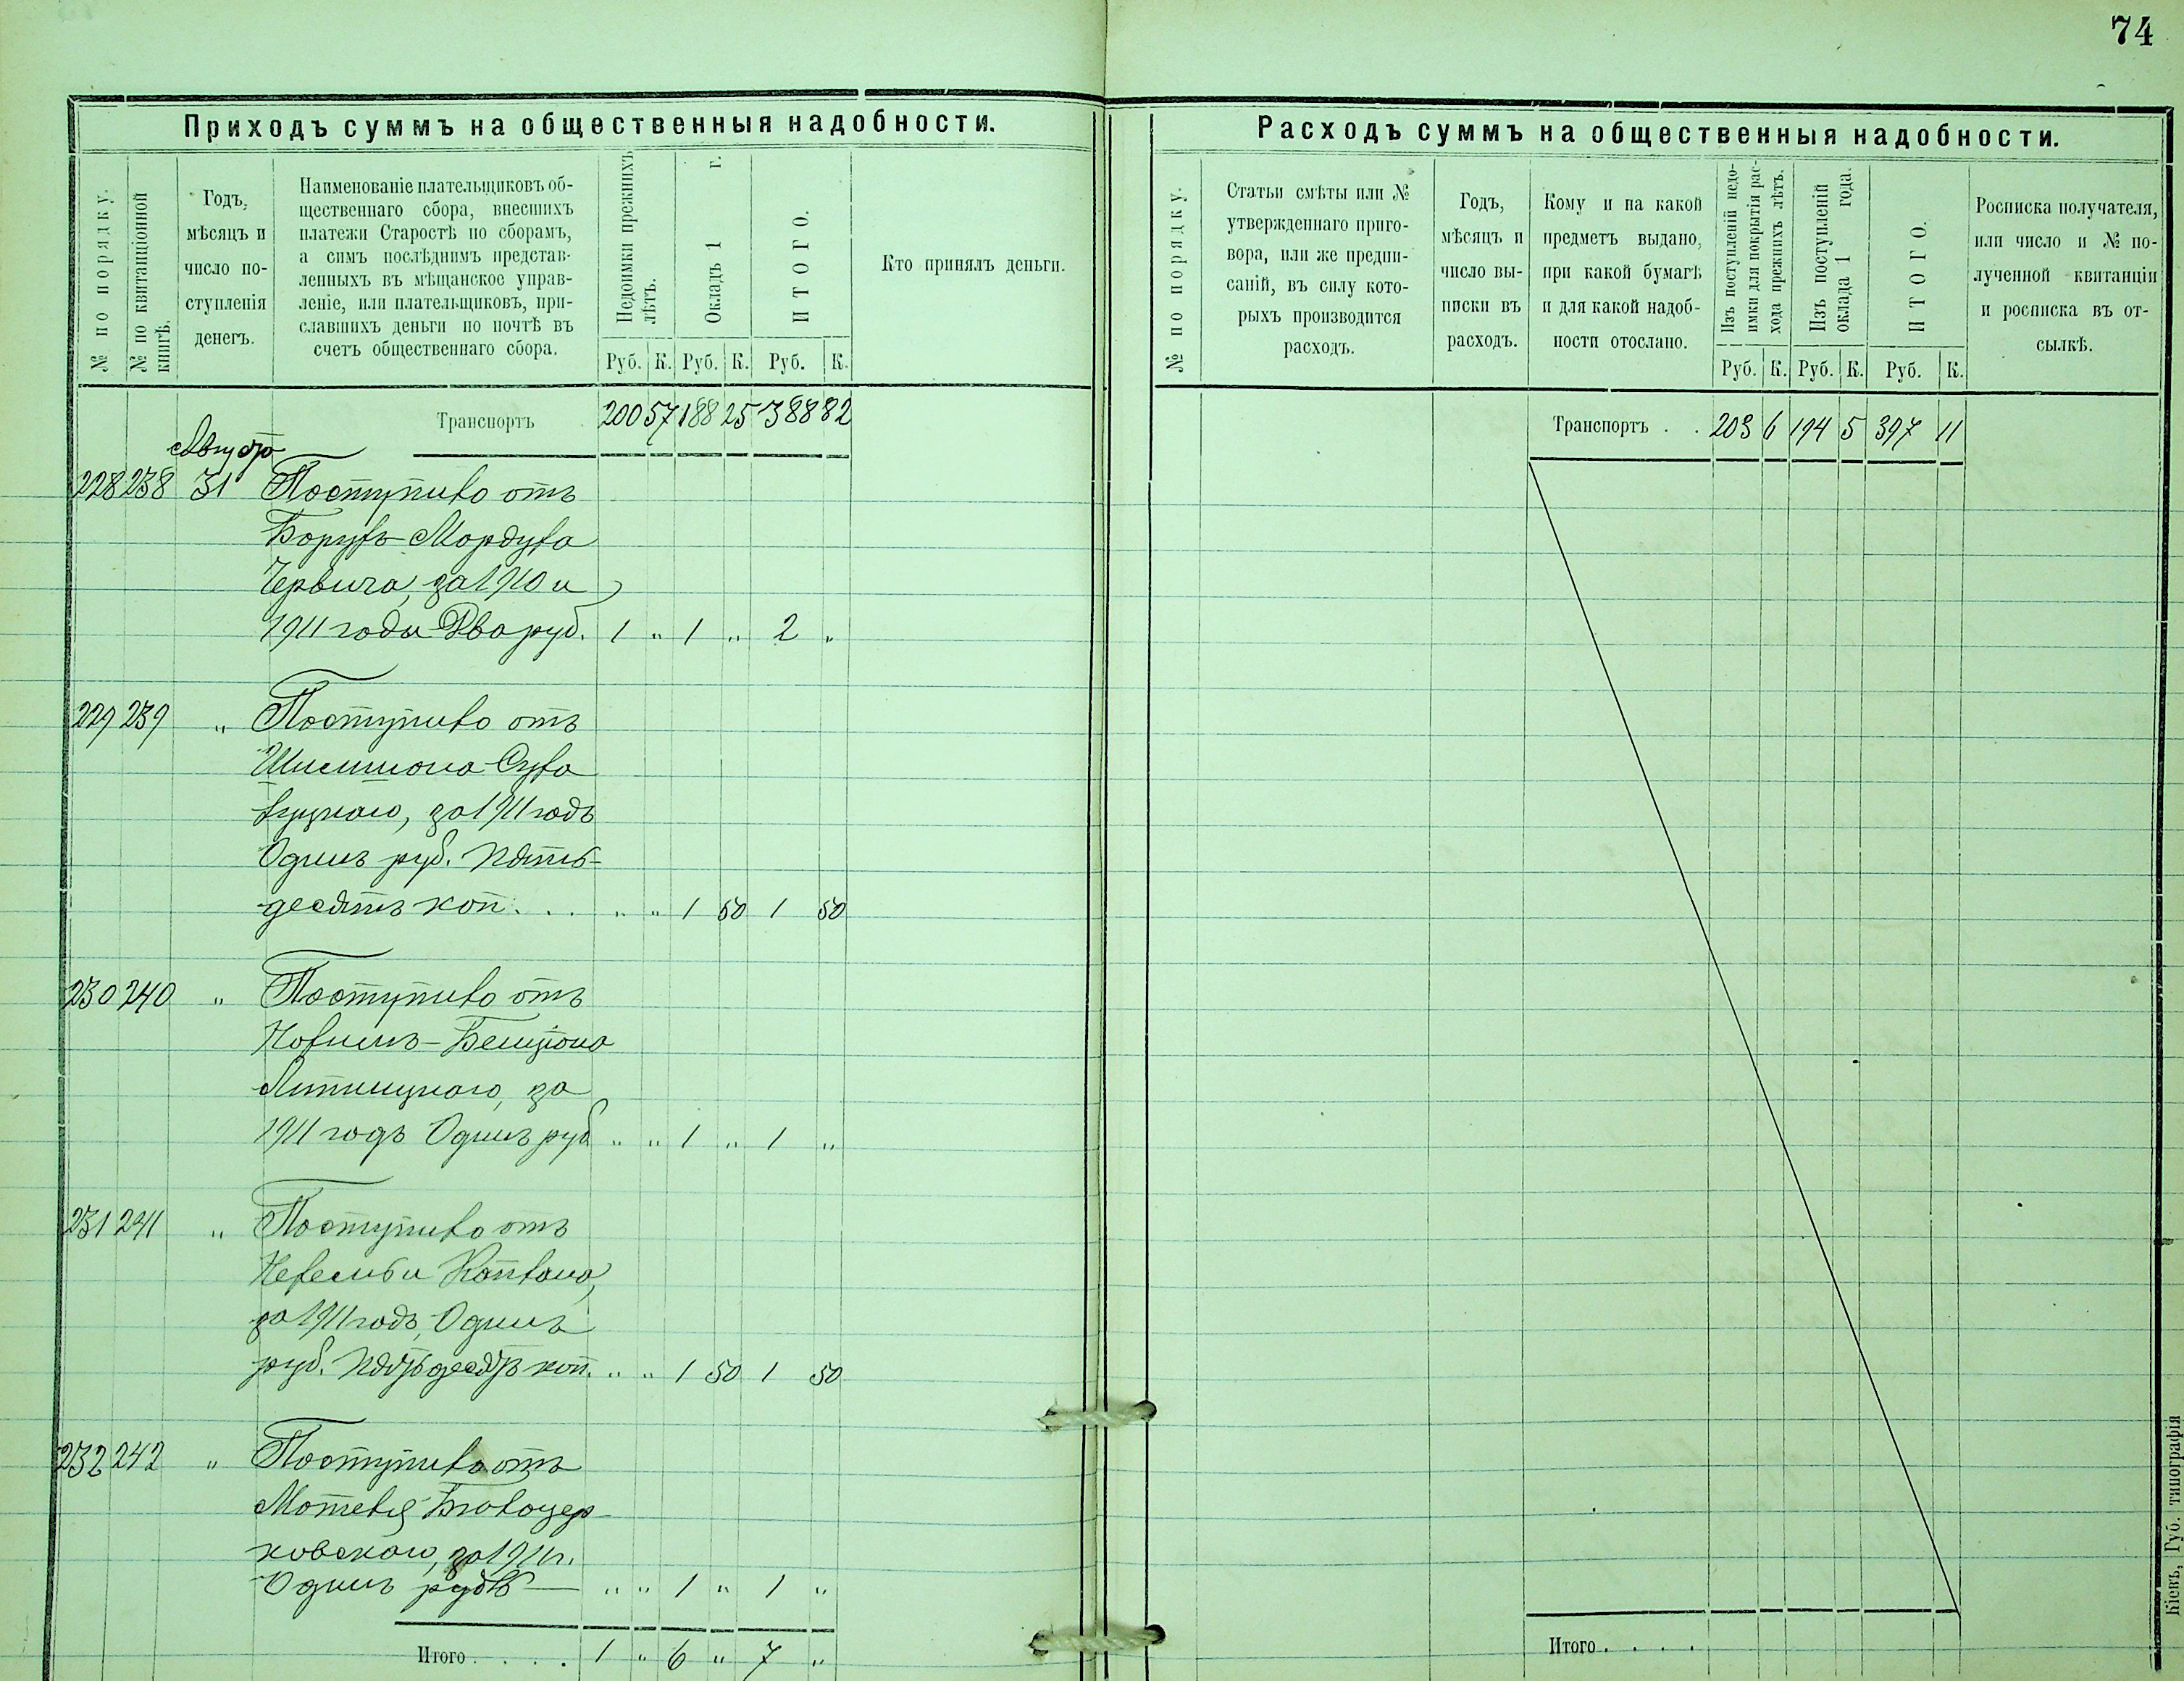 74
Приходъ суммъ на общественныя надобности.
№ по порядку.
№ по квитанціонной книгѣ.
Годъ, мѣсяцъ и число поступленія денегъ.
Наименованіе плательщиковъ об-
щественнаго сбора, внесшихъ
платежи Старостѣ по сборамъ,
а симъ послѣднимъ представ-
ленныхъ въ мѣщанское управ-
леніе, или плательщиковъ, при-
славшихъ деньги по почтѣ въ
счетъ общественнаго сбора.
Недоимки прежнихъ лѣтъ.
Окладъ 1 г.
ИТОГО.
Кто принялъ деньги.
Руб. К. Руб. К. Руб. К.
Транспортъ 200 57 188 25 388 82
Августа
228 238 31 Поступило отъ
Борухъ Мордуха
Червича, за 1910 и
1911 годы Два руб. 1 " 1 " 2 "
229 239 " Поступило отъ
Шимшона Суха
за 1911 годъ
Одинъ руб. пять-
десятъ коп. . . . " " 1 50 1 50
230 240 " Поступило отъ
Бенціона
за
1911 годъ Одинъ руб " " 1 " 1 "
231 241 " Поступило отъ
Каплана,
за 1911 годъ, Одинъ
руб. пятьдесятъ коп. " " 1 50 1 50
232 242 " Поступило отъ
Мотеля Бѣлоцер-
ковскаго, за 1911 г.
Одинъ рубль — " " 1 " 1 "
Итого . . . . 1 " 6 " 7 "
Расходъ суммъ на общественныя надобности.
№ по порядку.
Статьи смѣты или №
утвержденнаго приго-
вора, или же предпи-
саній, въ силу кото-
рыхъ производится
расходъ.
Годъ,
мѣсяцъ и
число вы-
писки въ
расходъ.
Кому и на какой
предметъ выдано,
при какой бумагѣ
и для какой надоб-
ности отослано.
Изъ поступленій недо-
имки для покрытія рас-
хода прежнихъ лѣтъ.
Изъ поступленій
оклада 1 года.
ИТОГО.
Росписка получателя,
или число и № по-
лученной квитанціи
и росписка въ от-
сылкѣ.
Руб. К. Руб. К. Руб. К.
Транспортъ . . 203 6 194 5 397 11
Итого . . . .
Кіевъ, Губ. типографія